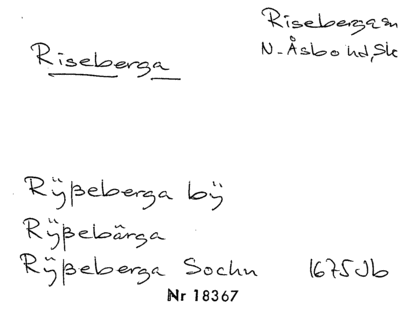 Riseberga sn
Riseberga
N. Åsbo hd, Sk
Rÿßeberga bÿ
Rÿßebârga
Rÿßeberga Sochn 1675 Jb
Nr 18367